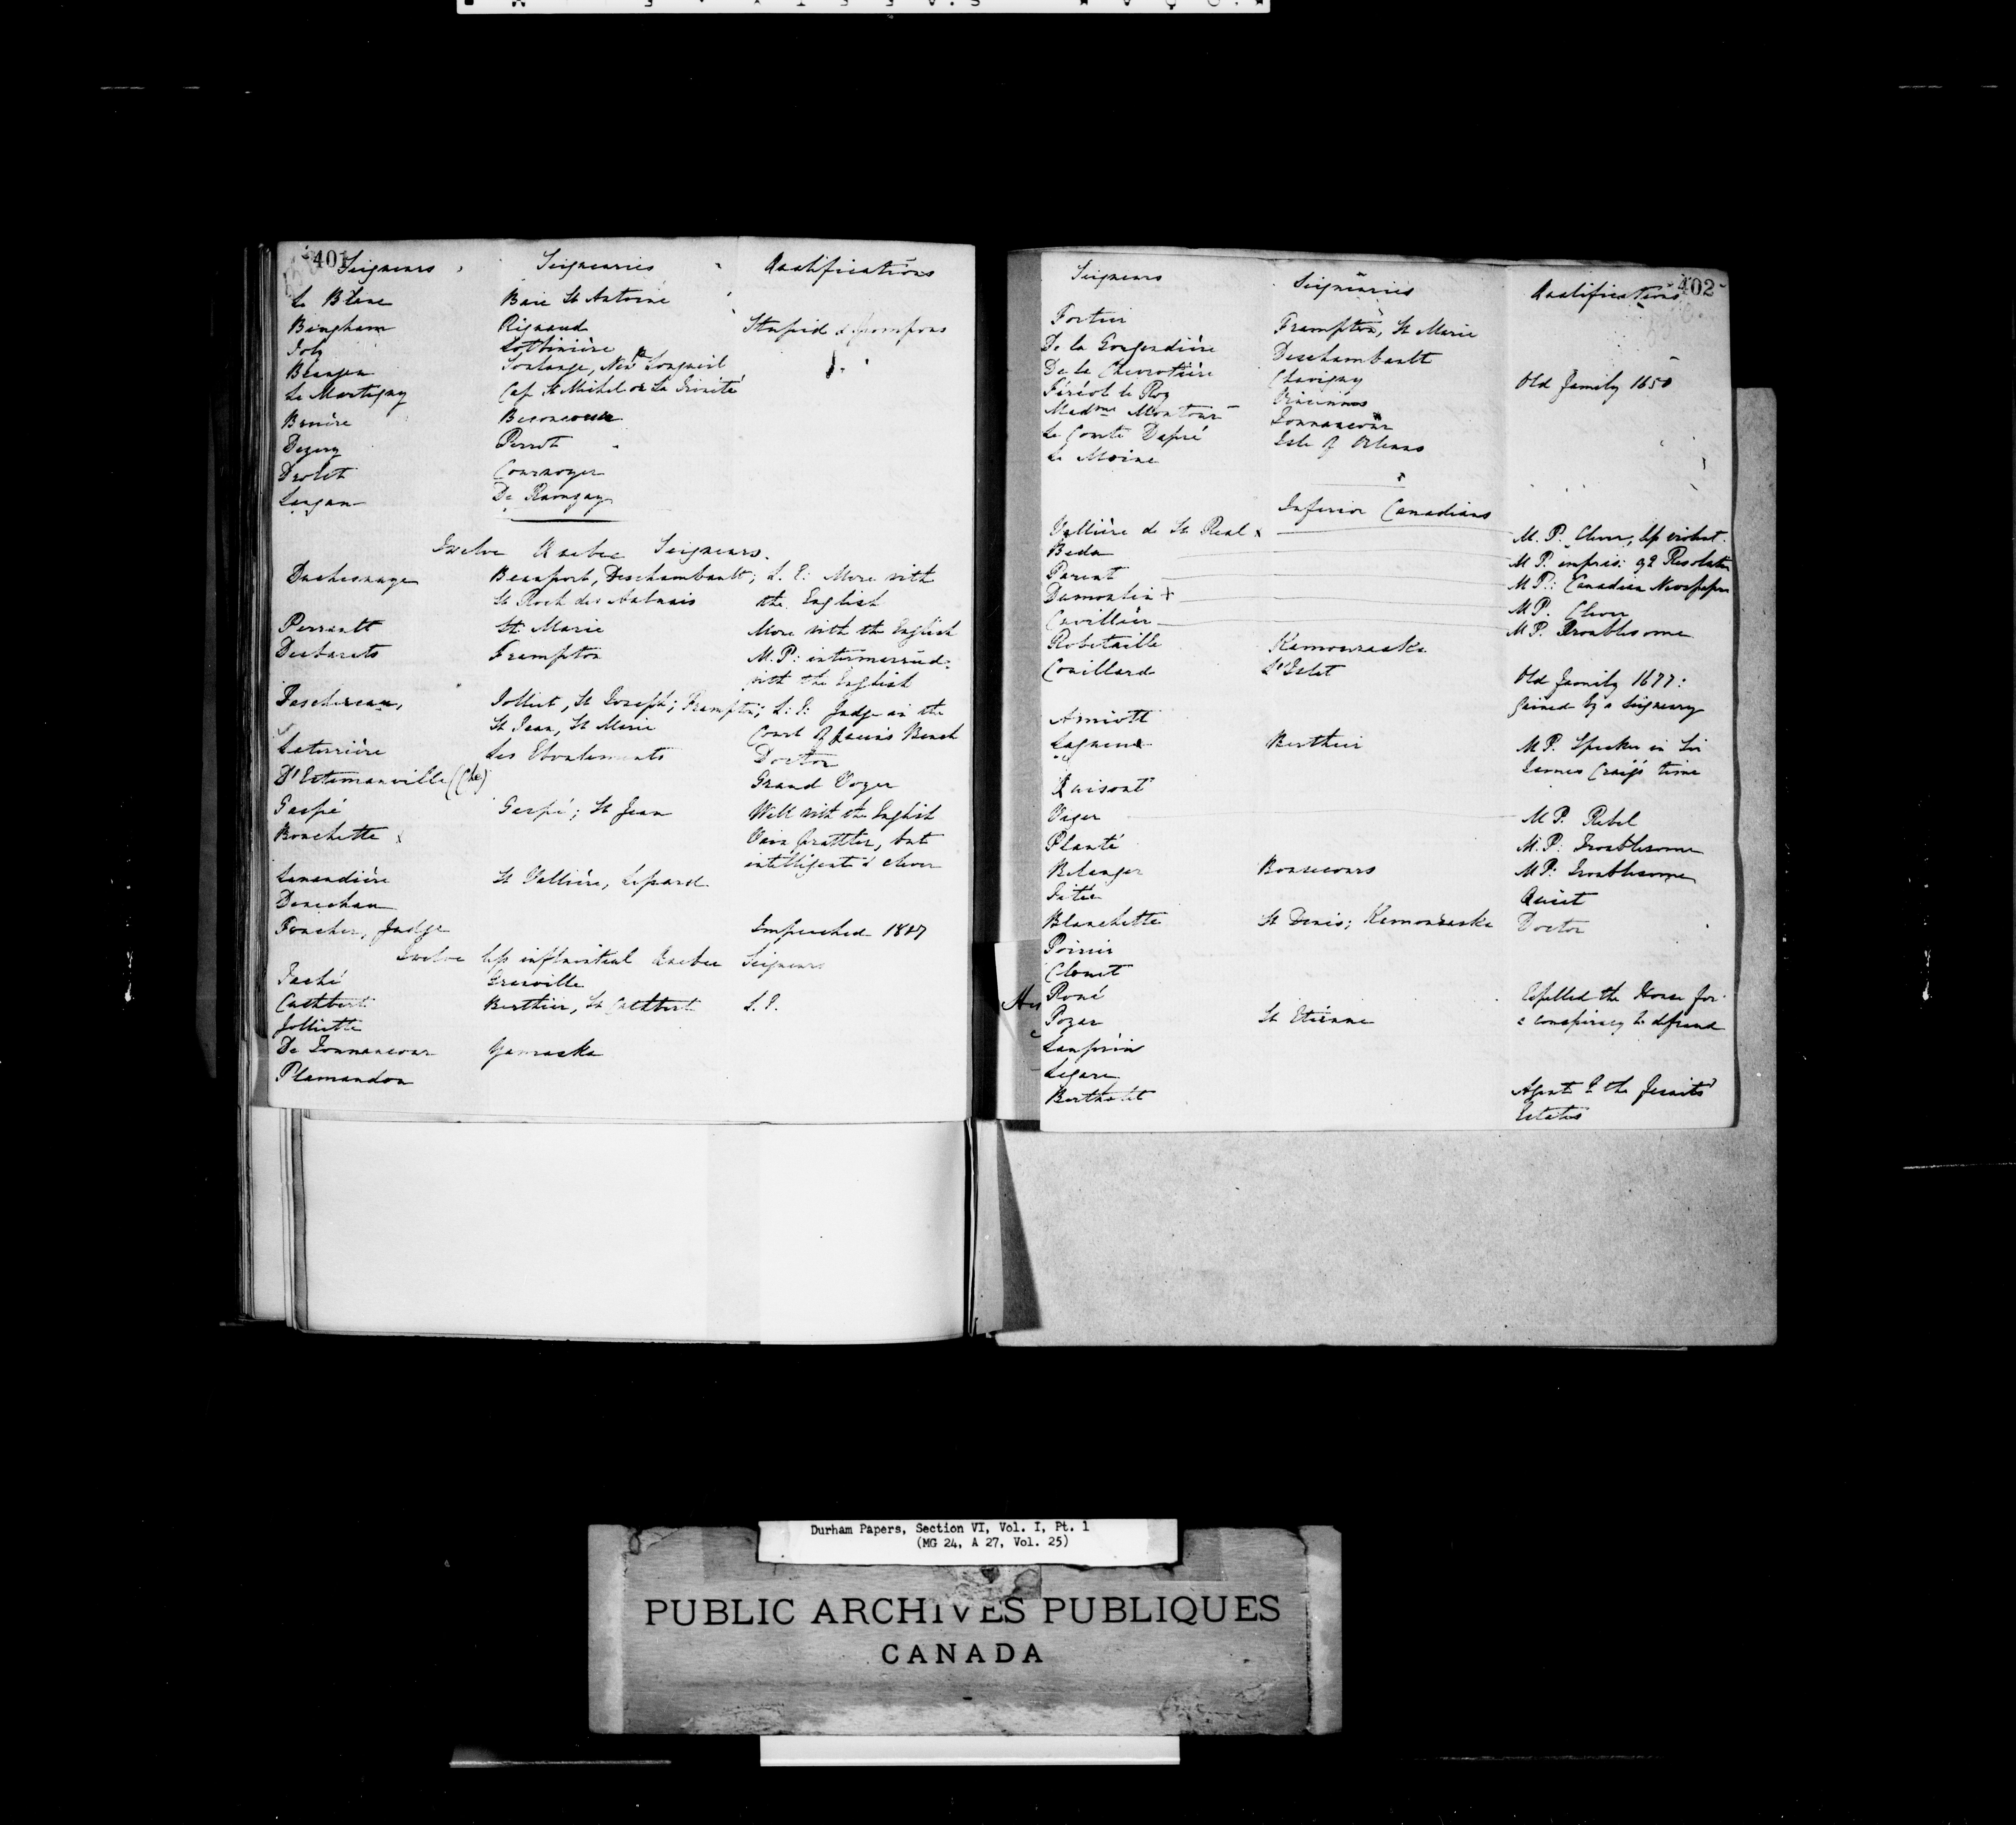 401
Seigneurs Seigneuries Qualifications
Le Blanc Baie St Antoine
Bingham Rigaud Stupid & pompous
Joly Lotbinière
Beaujeu Soulange, New Longueil
Le Martigny Cap St Michel or La Trinité
Bruière Beconcour
Dezery Perrot
Drolet Cournoyer
Langan De Ramzay
Twelve Quebec Seigneurs.
Duchesnaye Beauport, Deschambault; L. C: More with
St Roch des Aulnais the English
Perrault St. Marie More with the English
Desbarats Frampton M.P: intermarried
with the English
Taschereau, Jolliet, St Joseph; Frampton; L: C: Judge in the
St Jean, St Marie Court of King's Bench
Laterrière Les Eboulements Doctor
D'Estimanville (Che) Grand Voyer
Gaspé Gaspé; St Jean Well with the English
Bouchette x Vain prattler, but
intelligent & clever
Lanaudière St Vallière,
Denechau
Foucher, Judge Impeached 1817
Twelve less influential Quebec Seigneurs
Taché Granville
Cuthbert Berthier, St Cuthbert L. C.
Jolliette
De Tonnancour Yamaska
Plamandon
402
Seigneurs Seigneuries Qualifications
Fortier Frampton, St Marie
De la Gorgendière Deschambault
De la Chevrotière Chavigny Old family 1650
Féréol le Roy Vincennes
Madme Montour Tonnancour
Le Comte Dupré Isle of Orleans
Le Moine
Inferior Canadians
Vallière de St Real x M. P. Clever, but violent.
Beda M. P. impris: 92 Resolution
Parent M P: Canadian Newspaper
Dumoulin x M P. Clever
Cuvillier M P. Troublesome
Robitaille Kamouraska
Couillard L'Islet Old family 1677:
gained by a Seigneury
Amiott
Lagueux Berthier M P. Speaker in Sir
James Craig's time
Quirouet
Viger M P. Rebel
Planté M. P: Troublesome
Belanger Bonsecours M P: Troublesome
Têtu Quiet
Blanchette St Denis; Kamouraska Doctor
Poirier
Clouet
Roné Expelled the House for
Pozer St Etienne a conspiracy to defraud
Lanprin
Legare
Berthelot Agent to the Jesuits'
Estates
Durham Papers, Section VI, Vol. I, Pt. 1
(MG 24, A 27, Vol. 25)
PUBLIC ARCHIVES PUBLIQUES
CANADA